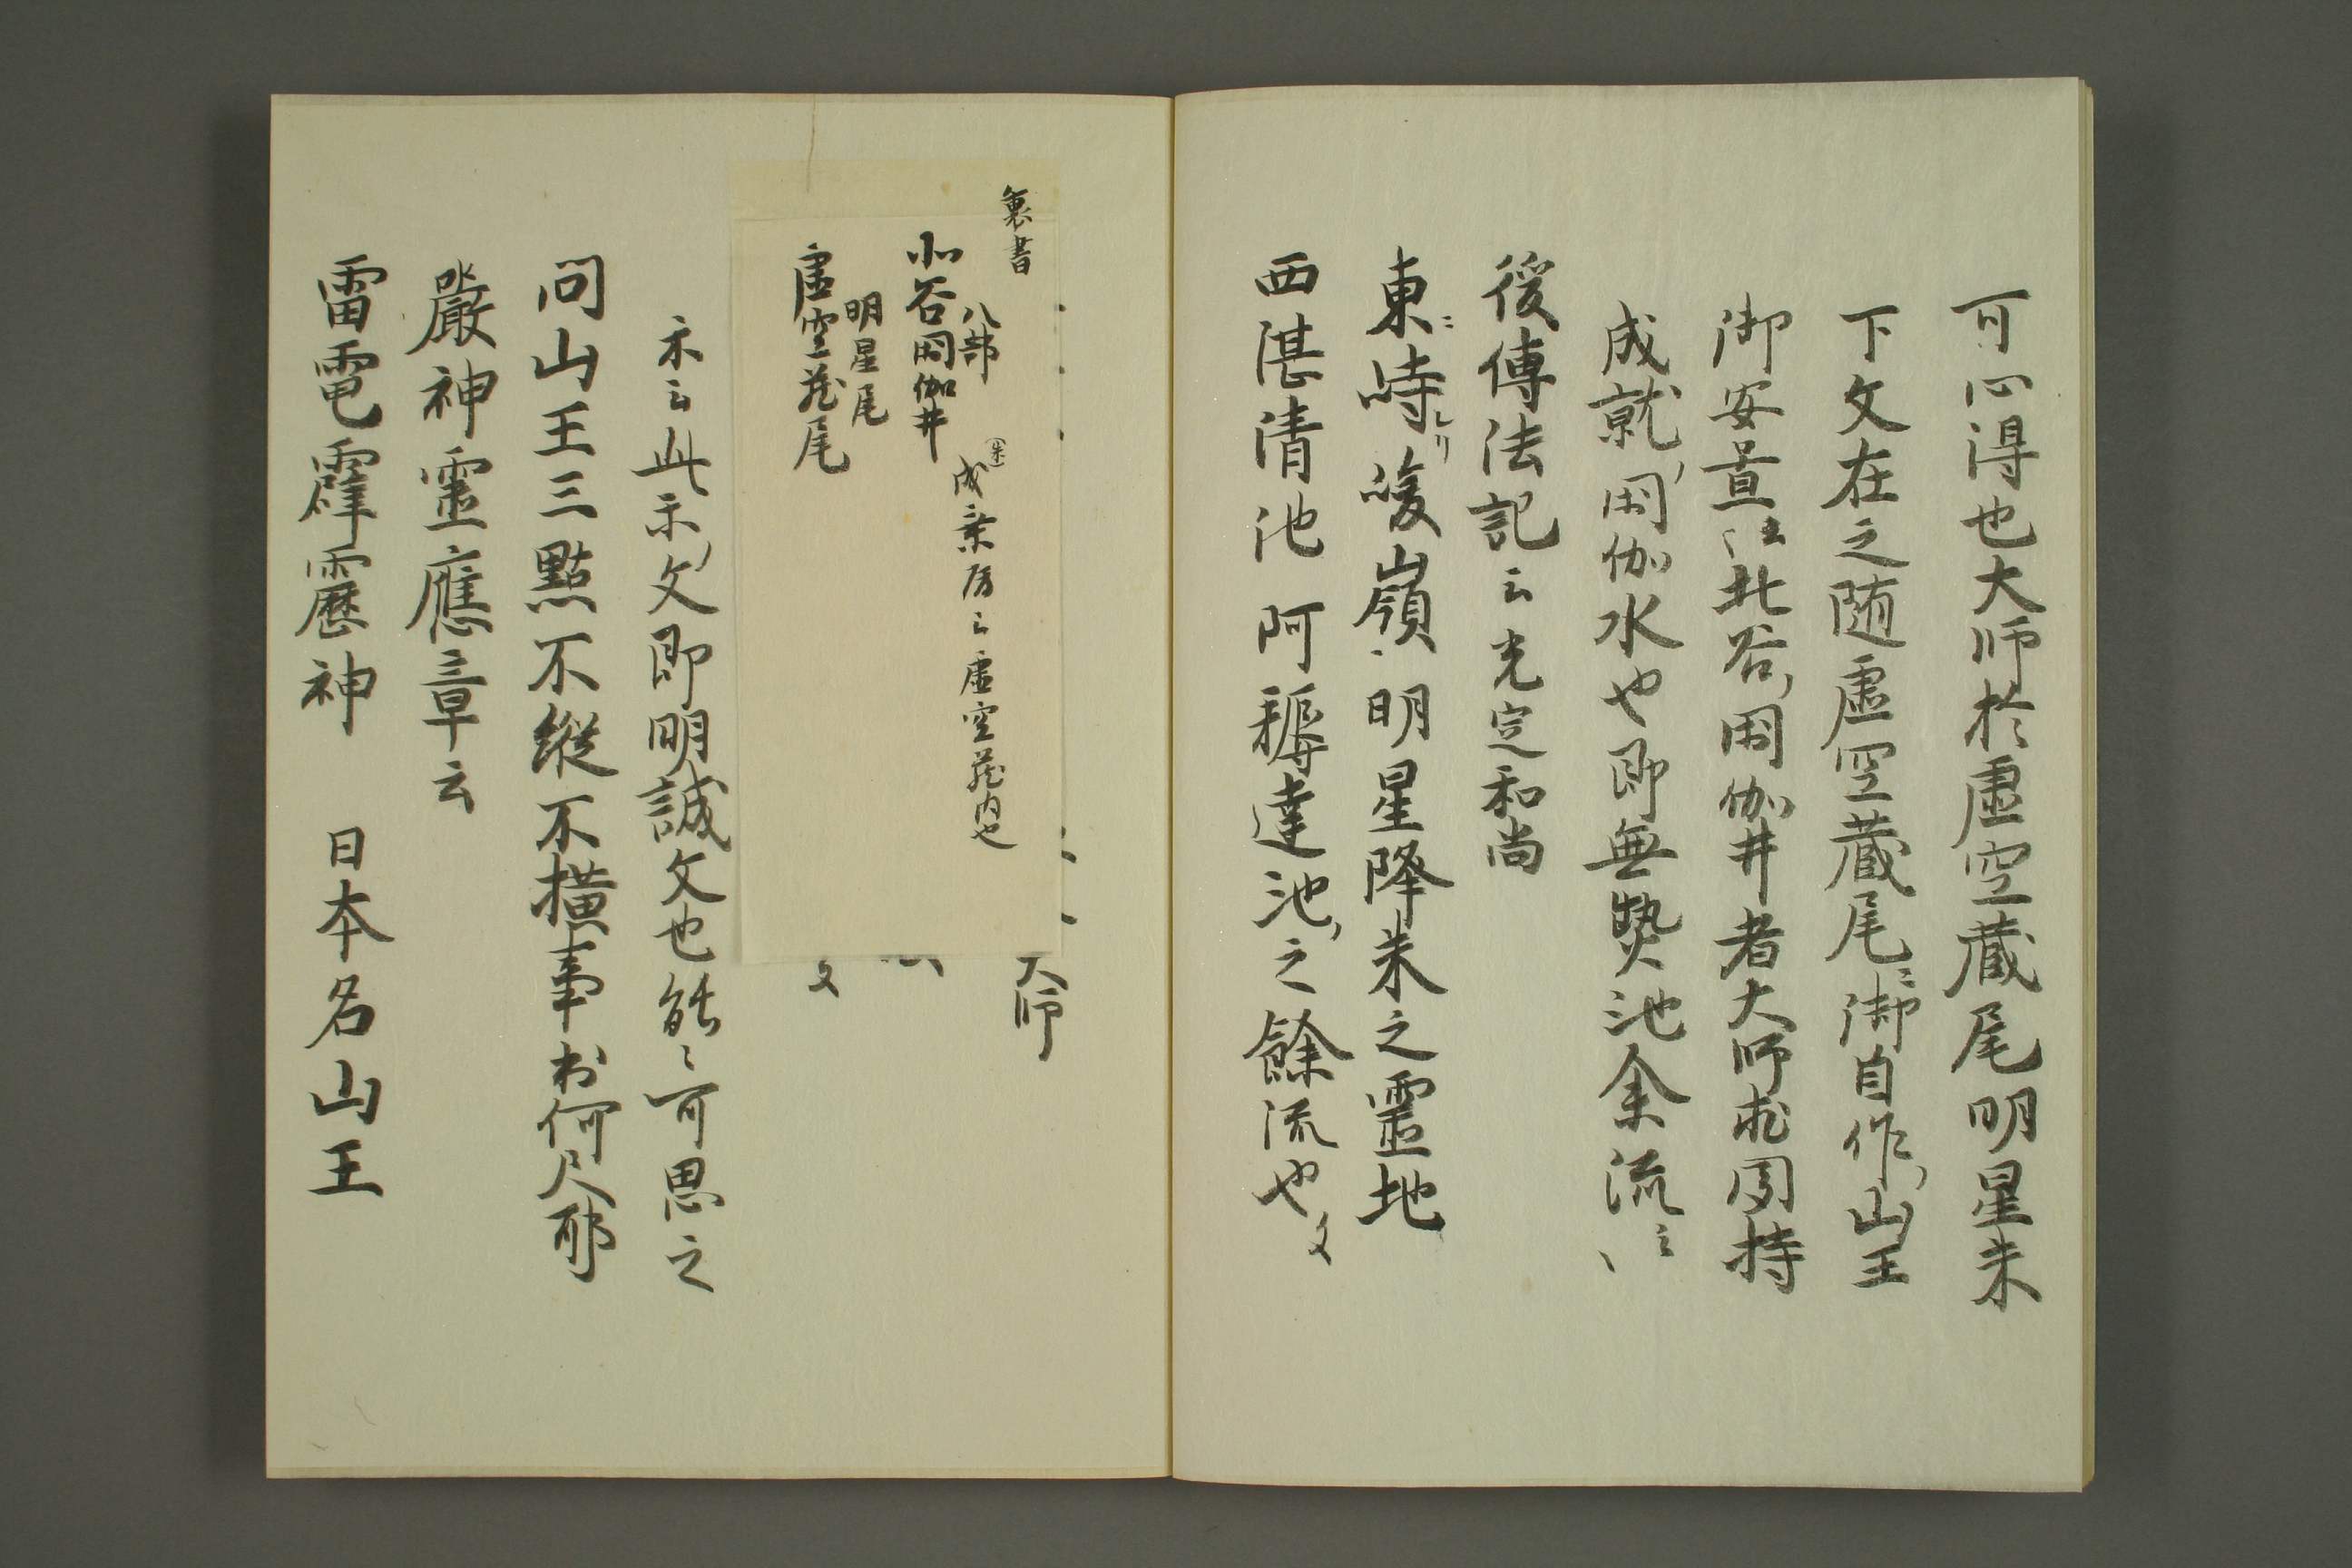 可心得也大師於虛空蔵尾明星来
下文在之随虛空蔵尾ニ御自作ノ山王
御安置云云北谷ノ閼伽井者大師求聞持
成就ノ閼伽水也即無熱池余流云云
後傳法記云光定和尚
東ニ峙シリ𡹐嶺明星降来之靈地
西湛清池阿耨達池ノ之餘流也文
大師
文
裏書
八部
北谷閼伽井
明星尾
虛空蔵尾
成乗房云虛空蔵内也
示云此示ノ文即明誠文也能々可思之
問山王三點不縦不横事出何尺耶
嚴神靈應章云
雷電霹靂神 日本名山王